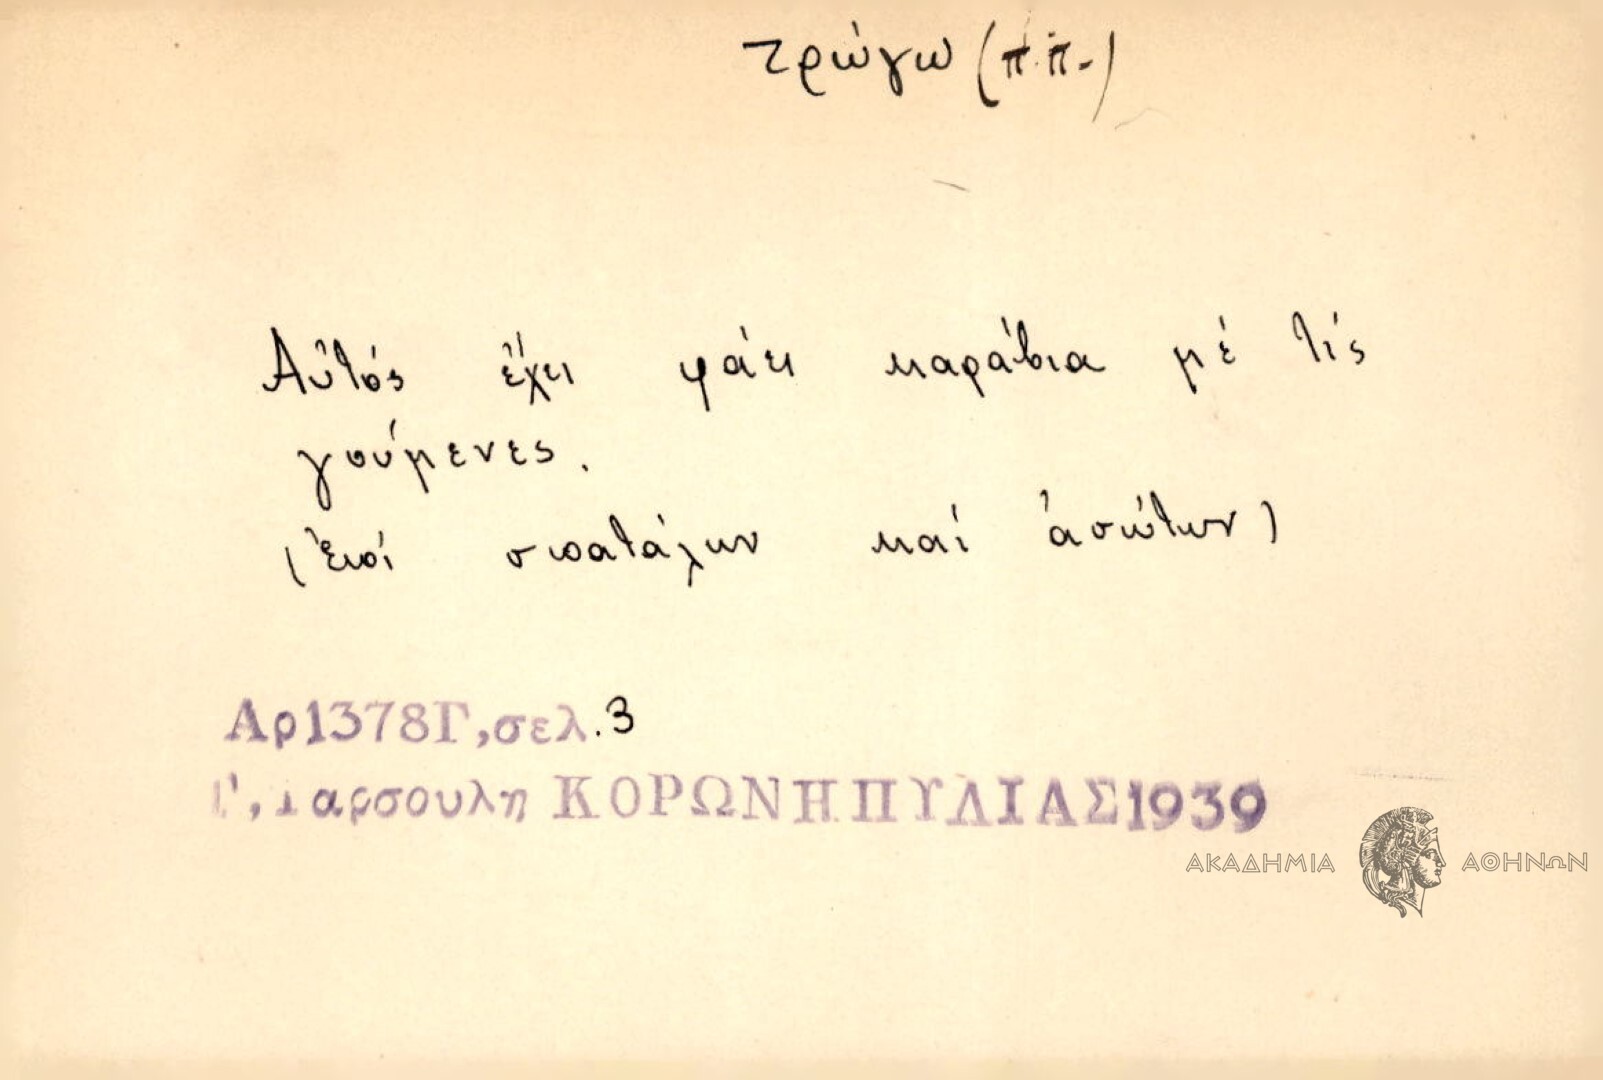 τρώγω (π.π.)
Αὐτός ἔχει φάει καράβια μέ τίς
γούμενες.
(ἐπί σπατάλων καί ἀσώτων)
Αρ1378Γ,σελ.3
Γ, Ταρσουλη ΚΟΡΩΝΗΠΥΛΙΑΣ1939
ΑΚΑΔΗΜΙΑ ΑΘΗΝΩΝ